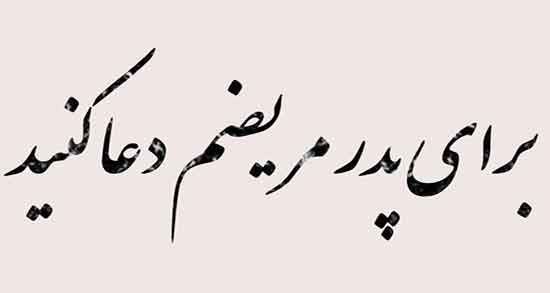 برای پدر مریضم دعا کنید